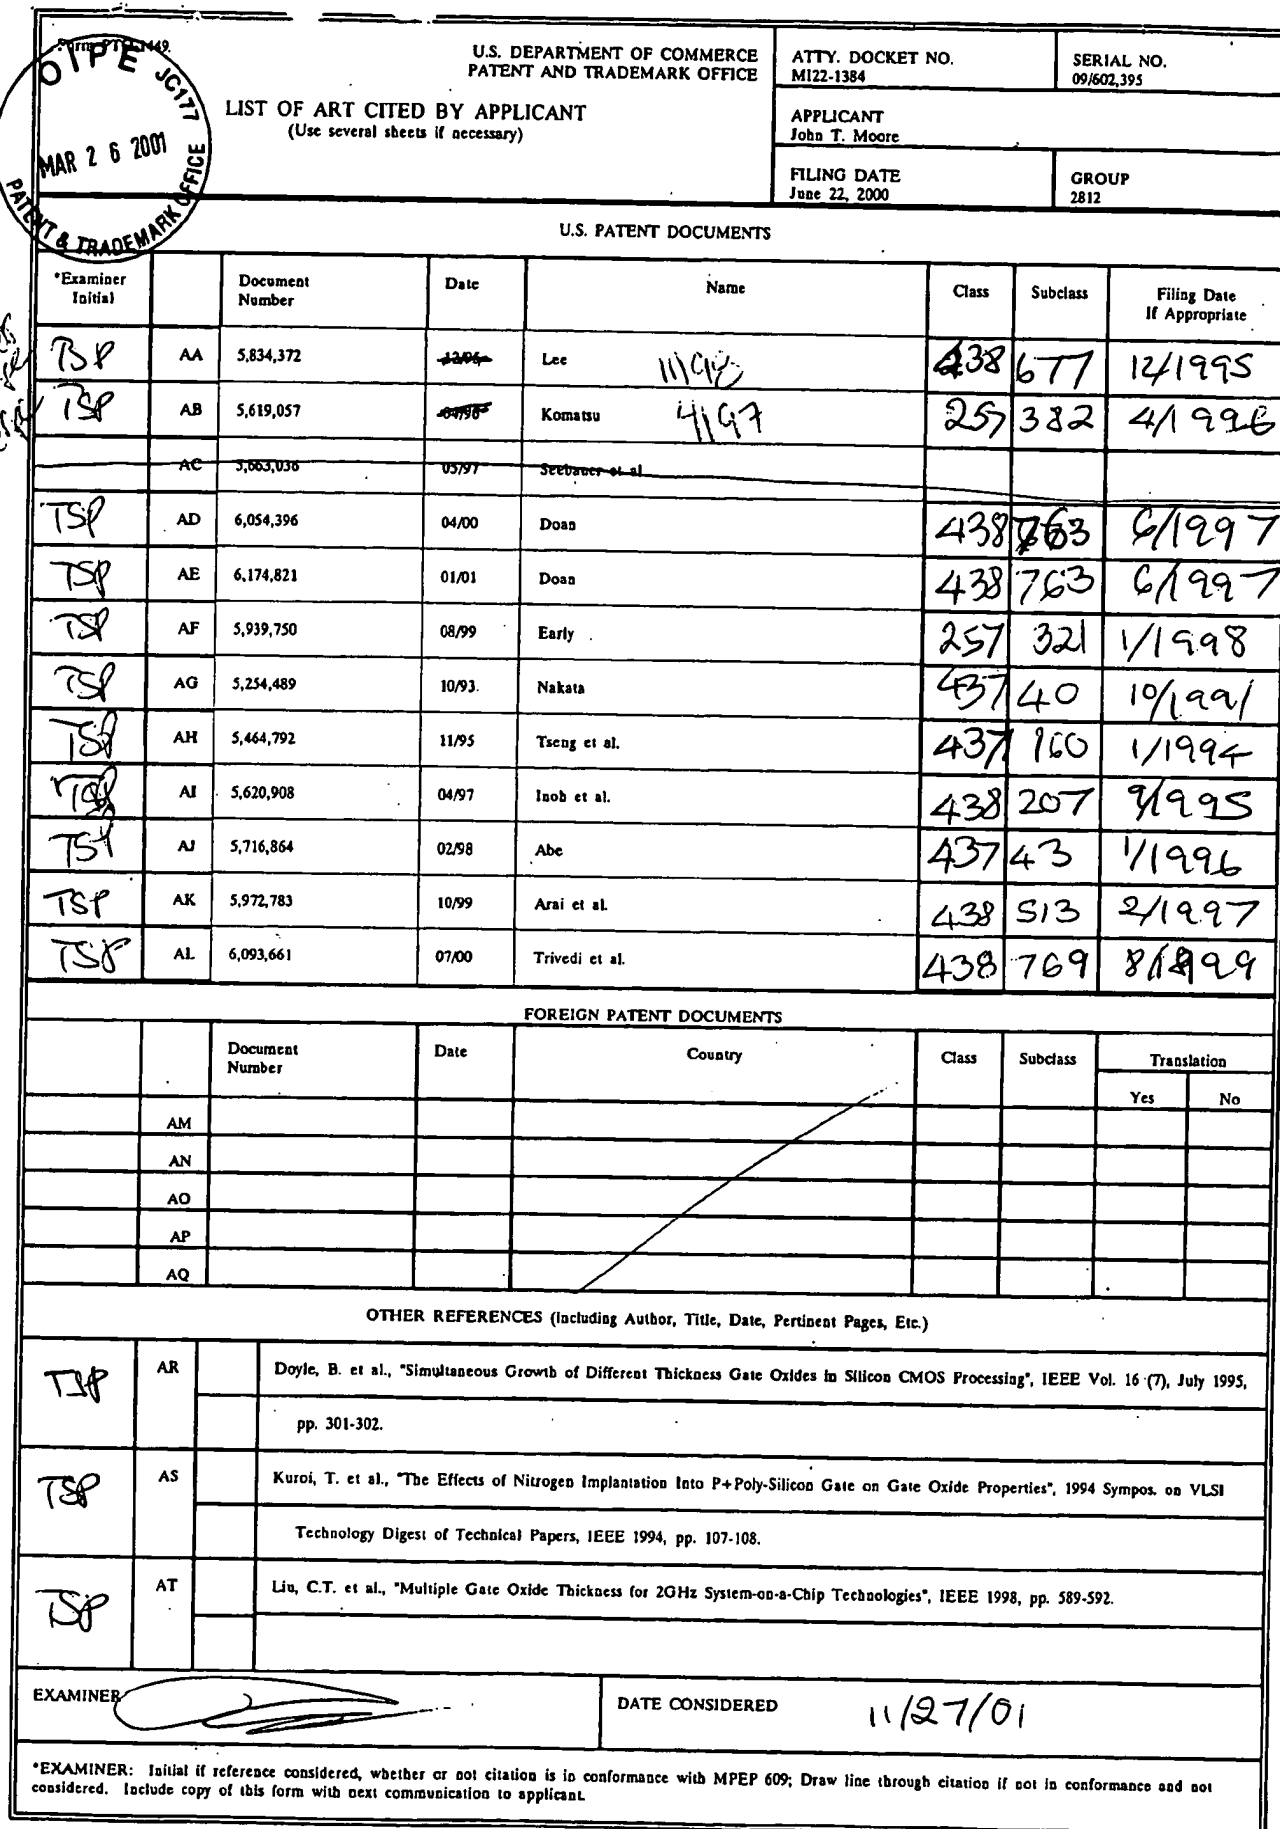 Form PTO-1449
OIPE JC177
MAR 26 2001
PATENT & TRADEMARK OFFICE
U.S. DEPARTMENT OF COMMERCE
PATENT AND TRADEMARK OFFICE
LIST OF ART CITED BY APPLICANT
(Use several sheets if necessary)
ATTY. DOCKET NO.
MI22-1384
SERIAL NO.
09/602,395
APPLICANT
John T. Moore
FILING DATE
June 22, 2000
GROUP
2812
U.S. PATENT DOCUMENTS
*Examiner Initial Document Number Date Name Class Subclass Filing Date If Appropriate
TSP AA 5,834,372 12/96 Lee 11/98 438 677 12/1995
TSP AB 5,619,057 04/96 Komatsu 4/97 257 382 4/1996
AC 5,663,036 05/97 Seebauer et al
TSP AD 6,054,396 04/00 Doan 438 763 6/1997
TSP AE 6,174,821 01/01 Doan 438 763 6/1997
TSP AF 5,939,750 08/99 Early 257 321 1/1998
TSP AG 5,254,489 10/93 Nakata 437 40 10/1991
TSP AH 5,464,792 11/95 Tseng et al. 437 160 1/1994
TSP AI 5,620,908 04/97 Inoh et al. 438 207 9/1995
TSP AJ 5,716,864 02/98 Abe 437 43 1/1996
TSP AK 5,972,783 10/99 Arai et al. 438 513 2/1997
TSP AL 6,093,661 07/00 Trivedi et al. 438 769 8/1999
FOREIGN PATENT DOCUMENTS
Document Number Date Country Class Subclass Translation
Yes No
AM
AN
AO
AP
AQ
OTHER REFERENCES (Including Author, Title, Date, Pertinent Pages, Etc.)
TSP AR Doyle, B. et al., "Simultaneous Growth of Different Thickness Gate Oxides in Silicon CMOS Processing", IEEE Vol. 16 (7), July 1995,
pp. 301-302.
TSP AS Kuroi, T. et al., "The Effects of Nitrogen Implantation Into P+Poly-Silicon Gate on Gate Oxide Properties", 1994 Sympos. on VLSI
Technology Digest of Technical Papers, IEEE 1994, pp. 107-108.
TSP AT Liu, C.T. et al., "Multiple Gate Oxide Thickness for 2GHz System-on-a-Chip Technologies", IEEE 1998, pp. 589-592.
EXAMINER DATE CONSIDERED 11/27/01
*EXAMINER: Initial if reference considered, whether or not citation is in conformance with MPEP 609; Draw line through citation if not in conformance and not
considered. Include copy of this form with next communication to applicant.